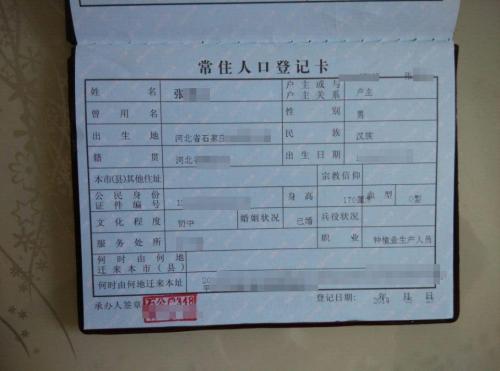 常住人口登记卡
姓 名 张 户主或与户主关系 户主
曾用名 性 别 男
出 生 地 河北省石家庄 民 族 汉族
籍 贯 河北省 出生日期
本市(县)其他住址 宗教信仰
公民身份证件编号 身 高 170厘米 血 型 O型
文化程度 初中 婚姻状况 已婚 兵役状况
服务处所 职 业 种植业生产人员
何时由何地迁来本市(县)
何时由何地迁来本址
承办人签章 登记日期: 年 月 日